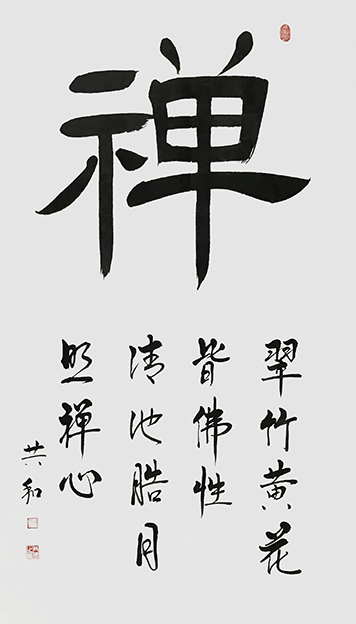 禅
翠竹黄花
皆佛性
清池皓月
照禅心
共和